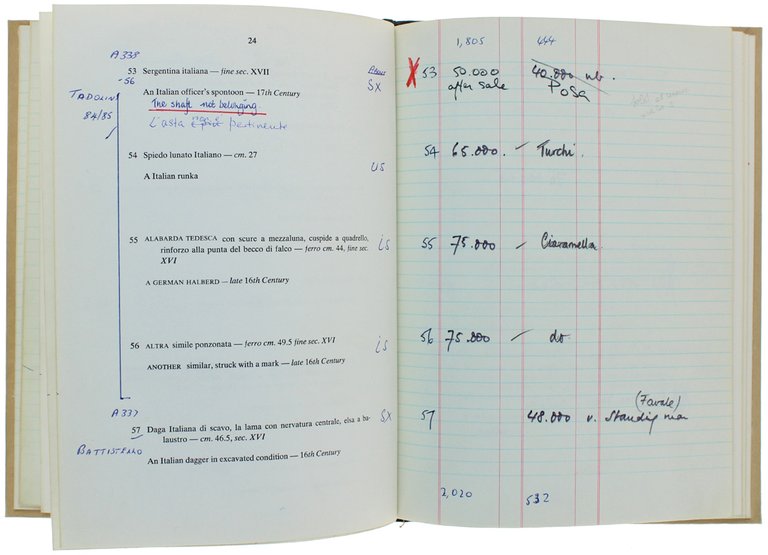 24
A 338
53 Sergentina italiana — fine sec. XVII
-56
SX
An Italian officer's spontoon — 17th Century
TADOLINI
84/85
The shaft not belonging.
L'asta non è pertinente
54 Spiedo lunato Italiano — cm. 27
US
A Italian runka
55 ALABARDA TEDESCA con scure a mezzaluna, cuspide a quadrello,
is
rinforzo alla punta del becco di falco — ferro cm. 44, fine sec.
XVI
A GERMAN HALBERD — late 16th Century
56 ALTRA simile ponzonata — ferro cm. 49.5 fine sec. XVI
is
ANOTHER similar, struck with a mark — late 16th Century
A 337
57 Daga Italiana di scavo, la lama con nervatura centrale, elsa a ba-
SX
laustro — cm. 46.5, sec. XVI
BATTISTELLO
An Italian dagger in excavated condition — 16th Century
1,805 444
X 53 50.000 40.000 nb.
after sale Posa
54 65.000. — Turchi.
55 75.000 — Ciaramella.
56 75.000 — do
(Favale)
57 48.000 v. Standig man
2,020 532